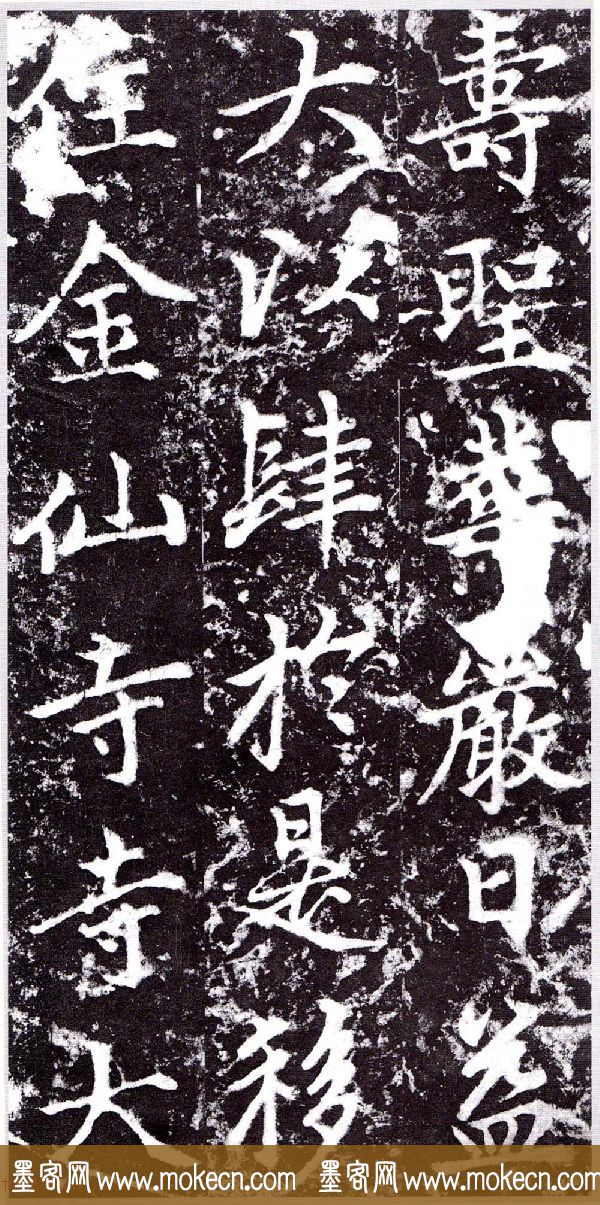 壽聖華嚴日益
大以肆於是移
住金仙寺寺大
墨客网 www.mokecn.com 墨客网 www.mokecn.com